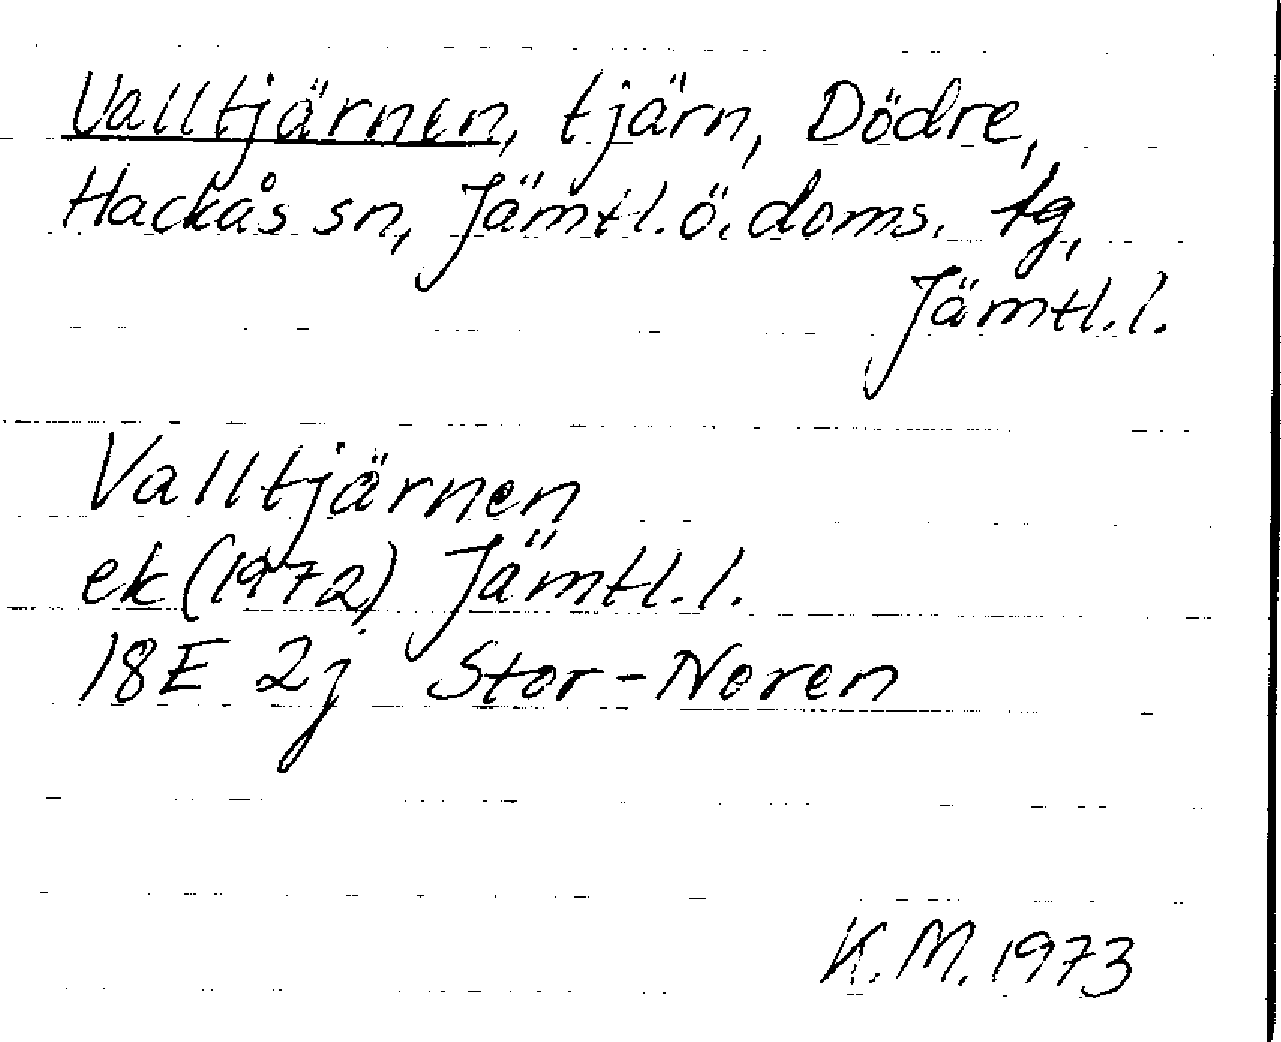 Valltjärnen, tjärn, Dödre,
Hackås sn, Jämtl. ö. doms. tg,
Jämtl. l.
Valltjärnen
ek (1972) Jämtl. l.
18E 2j Stor-Noren
K. M. 1973